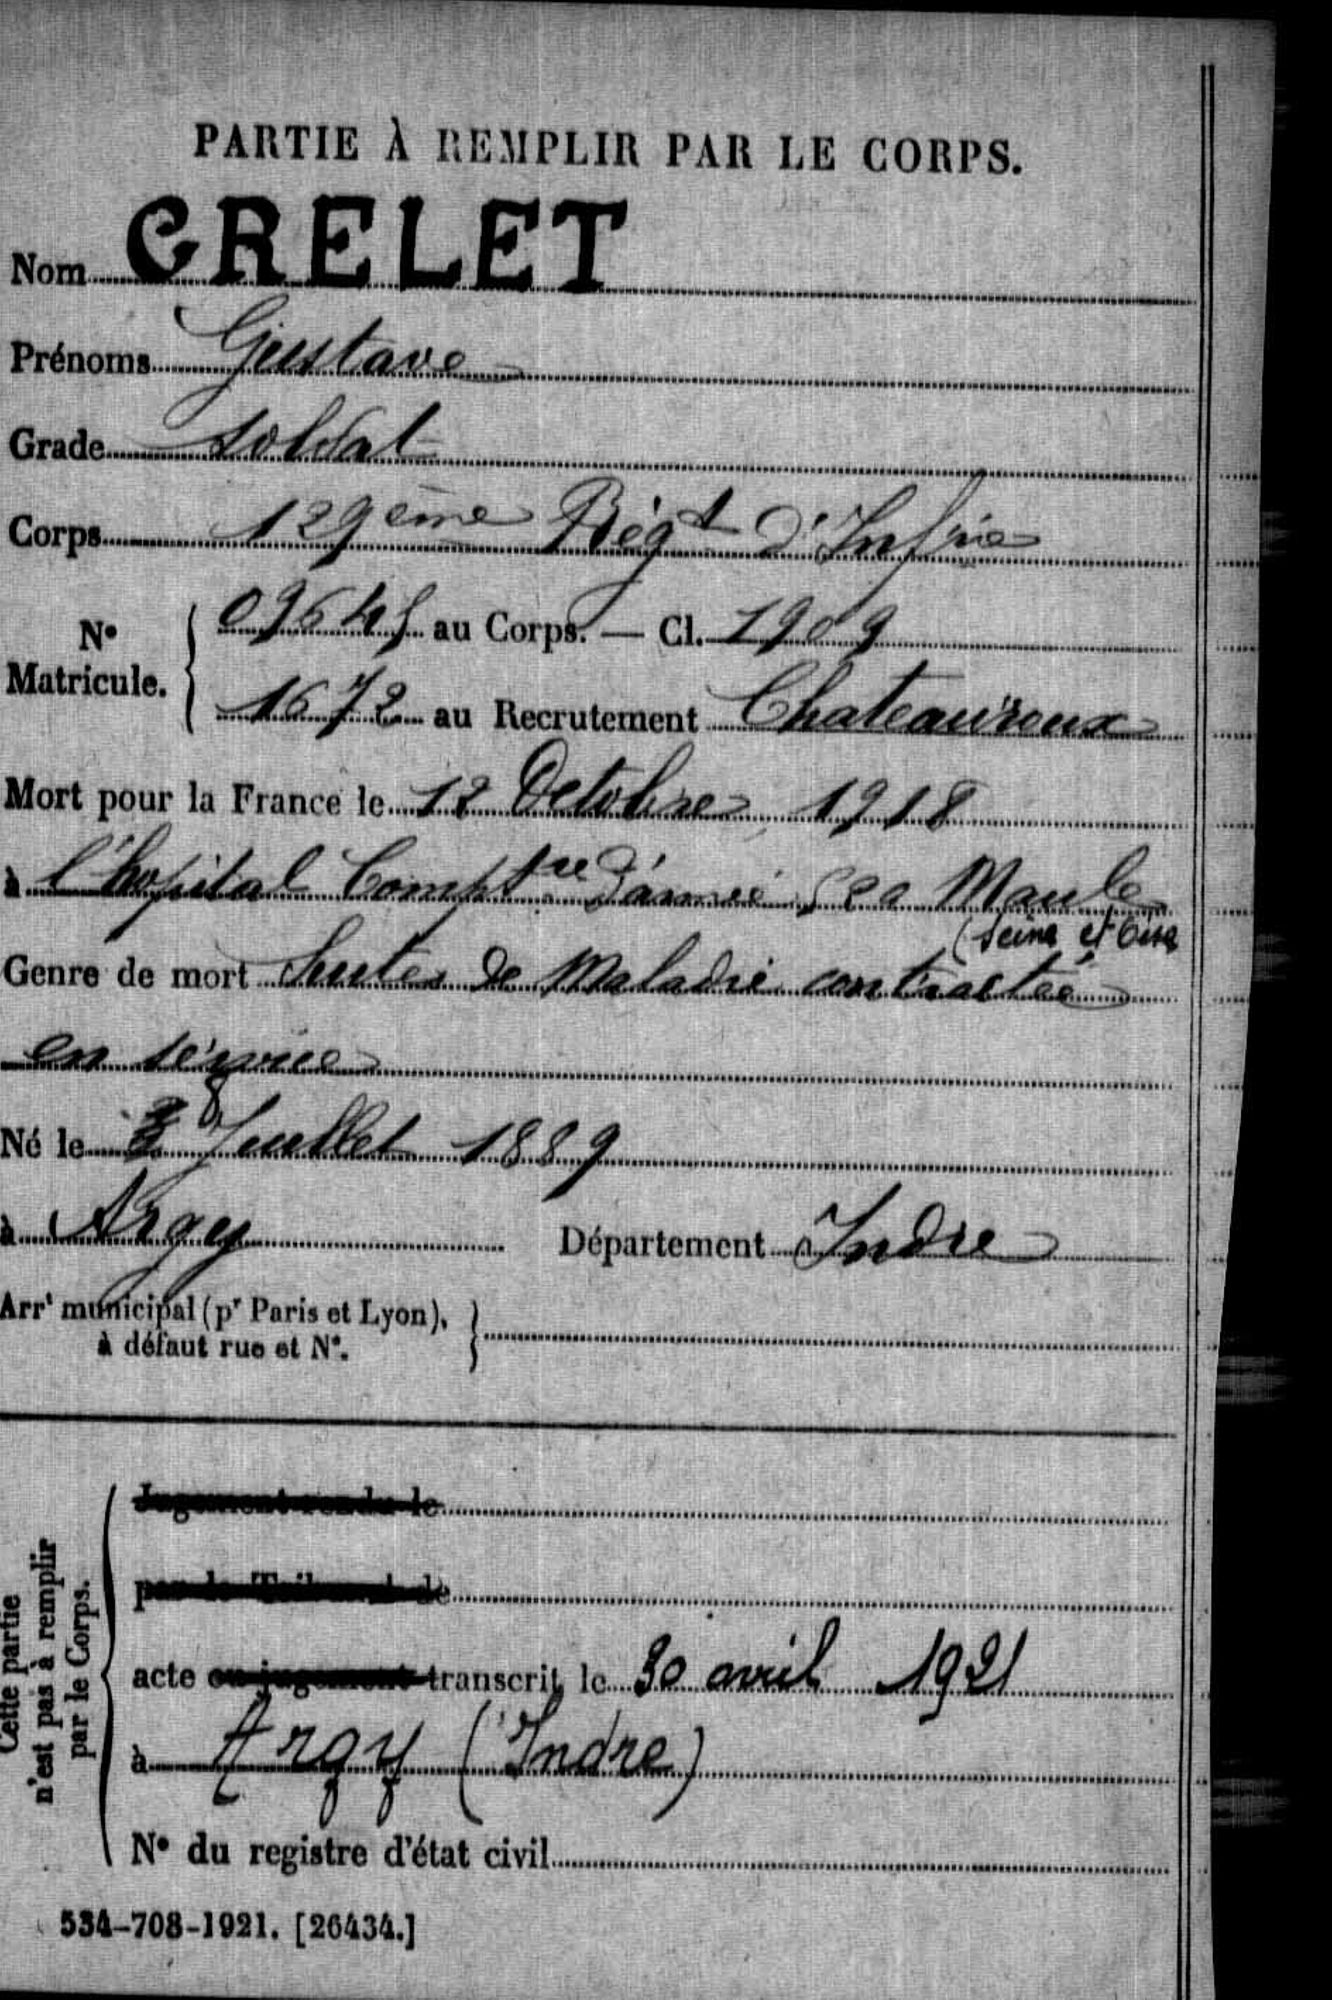 PARTIE À REMPLIR PAR LE CORPS.
Nom GRELET
Prénoms Gustave
Grade soldat
Corps 129ème Régt d'Infrie
N° Matricule. { 09645 au Corps. — Cl. 1909
1672 au Recrutement Chateauroux
Mort pour la France le 12 Octobre 1918
à l'hopital Compre d'armée Maule
(Seine et Oise
Genre de mort Suites de Maladie contractée
en service
Né le 8 Juillet 1889
à Argy Département Indre
Arrt municipal (pr Paris et Lyon),
à défaut rue et N°.
Cette partie
n'est pas à remplir
par le Corps.
Jugement rendu le
par le Tribunal de
acte ou jugement transcrit le 30 avril 1921
à Argy (Indre)
N° du registre d'état civil
534-708-1921. [26434.]